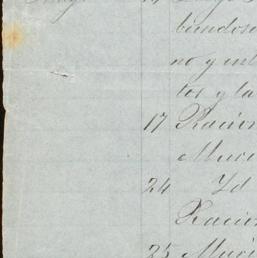 biendose
no y int
tos y la
17 Racion
Muri
24 Yd
Racion
25 Muri